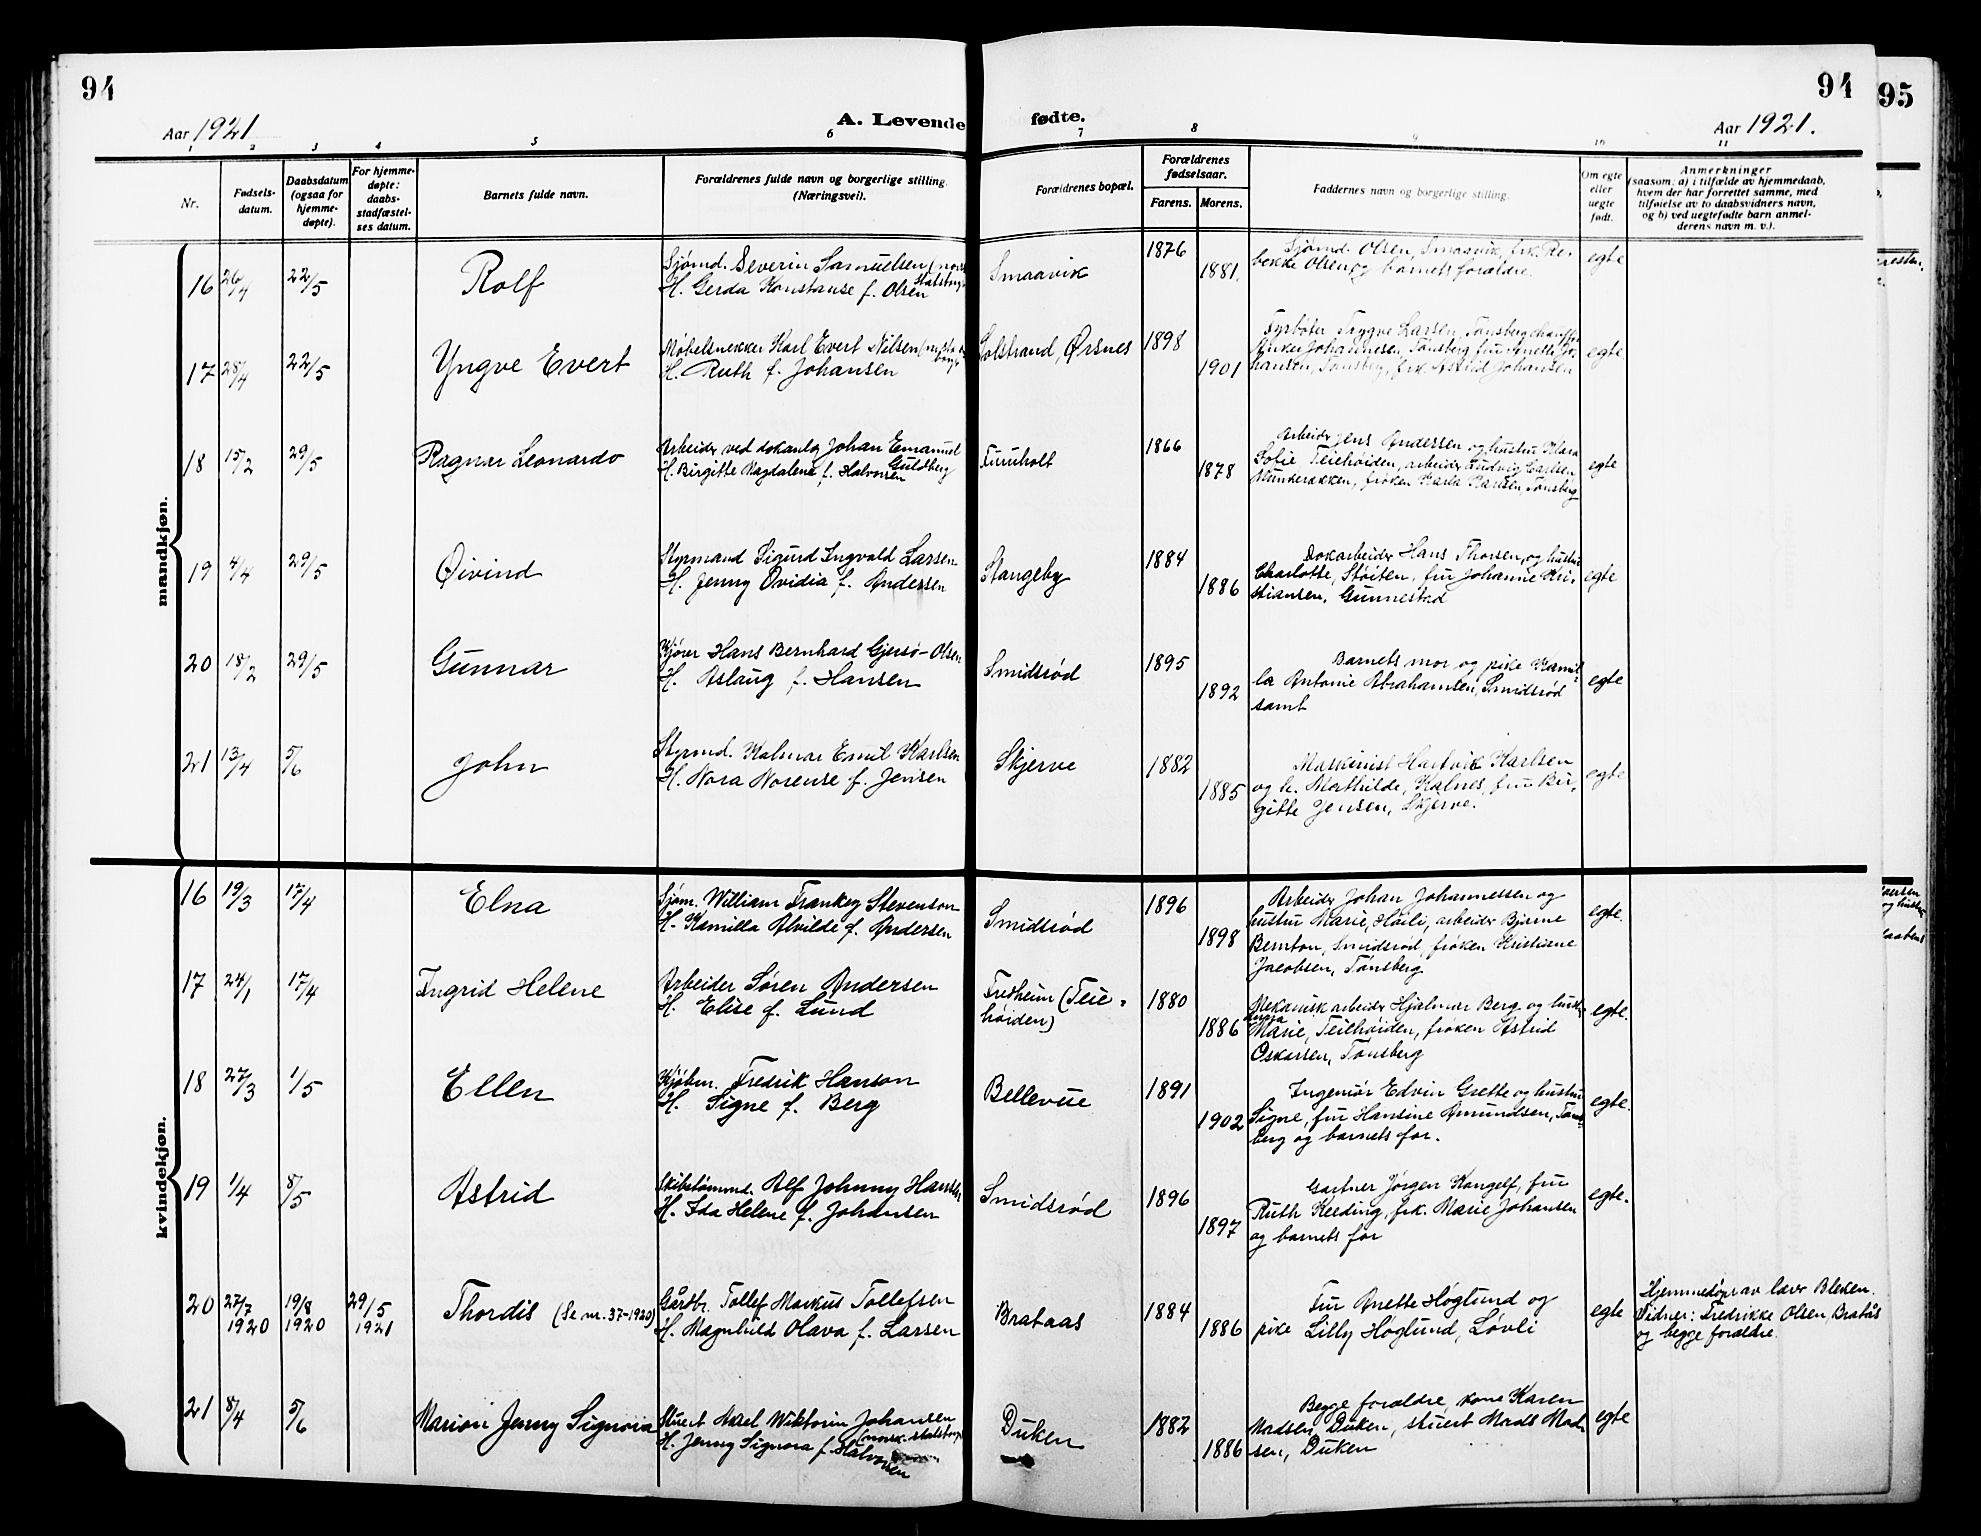 94
94
95
Aar 1921
A. Levende fødte.
Aar 1921.
1 2 3 4 5 6 7 8 9 10 11
Nr.
Fødsels-
datum.
Daabsdatum
(ogsaa for
hjemme-
døpte).
For hjemme-
døpte:
daabs-
stadfæstel-
ses datum.
Barnets fulde navn.
Forældrenes fulde navn og borgerlige stilling
(Næringsvei).
Forældrenes bopæl.
Forældrenes
fødselsaar.
Farens. Morens.
Faddernes navn og borgerlige stilling.
Om egte
eller
uegte
født.
Anmerkninger
(saasom: a) i tilfælde av hjemmedaab,
hvem der har forrettet samme, med
tilføielse av to daabsvidners navn,
og b) ved uegtefødte barn anmel-
derens navn m. v.).
mandkjøn.
16 26/4 22/5 Rolf
Sjømd. Severin Samuelsen (norsk
statsborg.
H. Gerda Konstanse f. Olsen
Smaavik
1876
1881.
Sjømd. Olsen, Smaavik, frk. Re-
bekke Olsen og barnets forældre.
egte
17 28/4 22/5 Yngve Evert
Møbelsnekker Karl Evert Nilsen
H. Ruth f. Johansen
Solstrand, Ørsnes
1898
1901
Fyrbøter Trygve Larsen, Tønsberg, chauffør
Johannesen, Tønsberg, fru Anette Jo-
hansen, Tønsberg, frk. Astrid Johansen
egte
18 15/2 29/5 Ragnar Leonardo
Arbeider ved dokanlg Johan Emanuel
Guldberg
H. Birgitte Magdalene f. Halvorsen
Furuholt
1866
1878
Arbeider Jens Andersen og hustru Klara
Sofie Teiehøiden, arbeider Ludvig Carlsen
Munkerekken, frøken Karla Karlsen, Tønsberg
egte
19 4/4 29/5 Øivind
Styrmand Sigurd Ingvald Larsen
H. Jenny Ovidia f. Andersen
Stangeby
1884
1886
Dokarbeider Hans Thorsen, og hustru
Charlotte, Støiten, fru Johanne Kri-
stiansen, Gunnestad
egte
20 18/2 29/5 Gunnar
Kjører Hans Bernhard Gjersø-Olsen
H. Aslaug f. Hansen
Smidsrød
1895
1892
Barnets mor og pike Kamil-
la Antonie Abrahamsen, Smidsrød
samt
egte
21 13/4 5/6 John
Styrmd. Kalmar Emil Karlsen
H. Nora Norense f. Jensen
Skjerve
1882
1885
Maskinist Hartvik Karlsen
og h. Marthilde, Kalnes, fru Bir-
gitte Jensen, Skjerve.
egte
kvindekjøn.
16 19/3 17/4 Elna
Sjøm. William Frankey Stevenson
H. Kamilla Alvilde f. Andersen
Smidsrød
1896
1898
Arbeider Johan Johannessen og
hustru Marie, Høili, arbeider Bjarne
Bernton, Smidsrød, frøken Kristiane
Jacobsen, Tønsberg
egte.
17 24/1 17/4 Ingrid Helene
Arbeider Søren Andersen
H. Elise f. Lund
Fredheim (Teie-
høiden)
1880
1886
Mekanisk arbeider Hjalmar Berg og hustru
Marie, Teiehøiden, frøken Astrid
Oskarsen, Tønsberg
egte.
18 27/3 1/5 Ellen
Kjøbm. Fredrik Hanson
H. Signe f. Berg
Bellevue
1891
1902
Ingeniør Edvin Grette og hustru
Signe, fru Hansine Amundsen, Tøns-
berg og barnets far.
egte.
19 1/4 8/5 Astrid
Skibstømmd. Alf Johnny Hansen
H. Ida Helene f. Johansen
Smidsrød
1896
1897
Gartner Jørgen Kangelf, fru
Ruth Keeding, frk. Marie Johansen
og barnets far
egte.
20 27/7 1920 19/8 1920 29/5 1921 Thordis (Se nr. 37-1920)
Gårdbr. Tollef Markus Tollefsen
H. Magnhild Olava f. Larsen
Brataas
1884
1886
Fru Anette Høglund og
pike Lilly Høglund, Løvli
egte
Hjemmedøpt av lærer Bleken.
Vidner: Fredrikke Olsen, Bratås
og begge forældre.
21 8/4 5/6 Marion Jenny Signora
Stuert Axel Wiktorin Johansen
(norsk statsborg.
H. Jenny Signora f. Halvorsen
Duken
1882
1886
Begge forældre, kone Karen
Madsen, Duken, stuert Mads Mad-
sen, Duken
egte